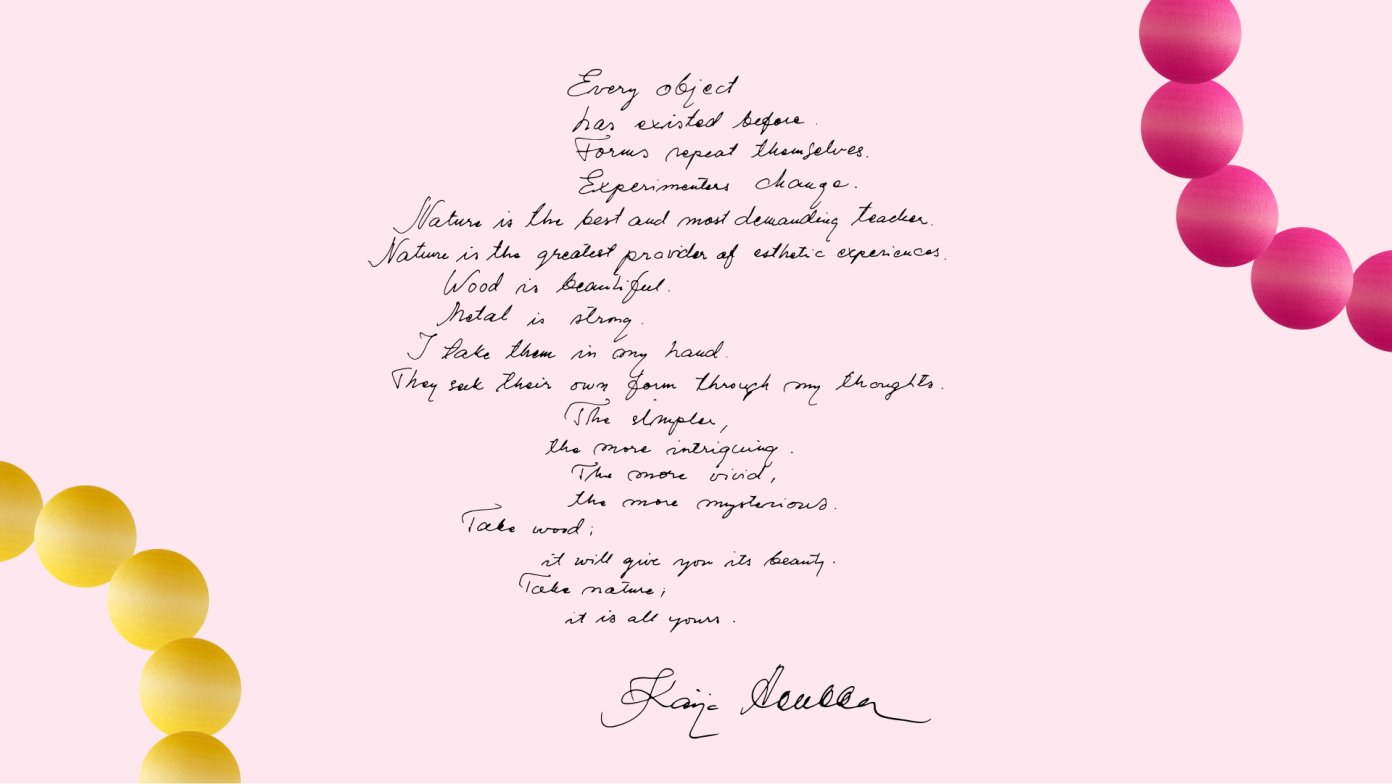 Every object
has existed before.
Forms repeat themselves.
Experimenters change.
Nature is the best and most demanding teacher.
Nature is the greatest provider of esthetic experiences.
Wood is beautiful.
Metal is strong.
I take them in my hand.
They seek their own form through my thoughts.
The simpler,
the more intriguing.
The more vivid,
the more mysterious.
Take wood;
it will give you its beauty.
Take nature;
it is all yours.
Kaija